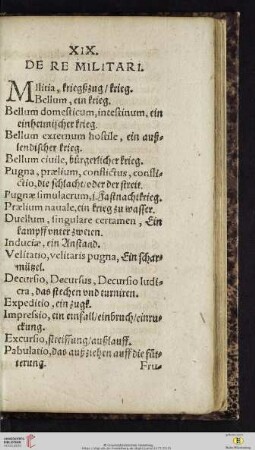 XIX.
DE RE MILITARI.
Militia, kriegßzug/krieg.
Bellum, ein krieg.
Bellum domesticum, intestinum, ein
einheimischer krieg.
Bellum externum hostile, ein auß-
lendischer krieg.
Bellum ciuile, bürgerlicher krieg.
Pugna, prælium, conflictus, confli-
ctio, die schlacht/oder der streit.
Pugnæ simulacrum, i. Fastnachtkrieg.
Prælium nauale, ein krieg zu wasser.
Duellum, singulare certamen, Ein
kampff vnter zweien.
Induciæ, ein Anstand.
Velitatio, velitaris pugna, Ein schar-
mützel.
Decursio, Decursus, Decursio ludi-
cra, das stechen vnd turniren.
Expeditio, ein zugk.
Impressio, ein einfall/einbruch/einru-
ckung.
Excursio, streiffung/außlauff.
Pabulatio, das außziehen auff die füt-
terung.
Fru-